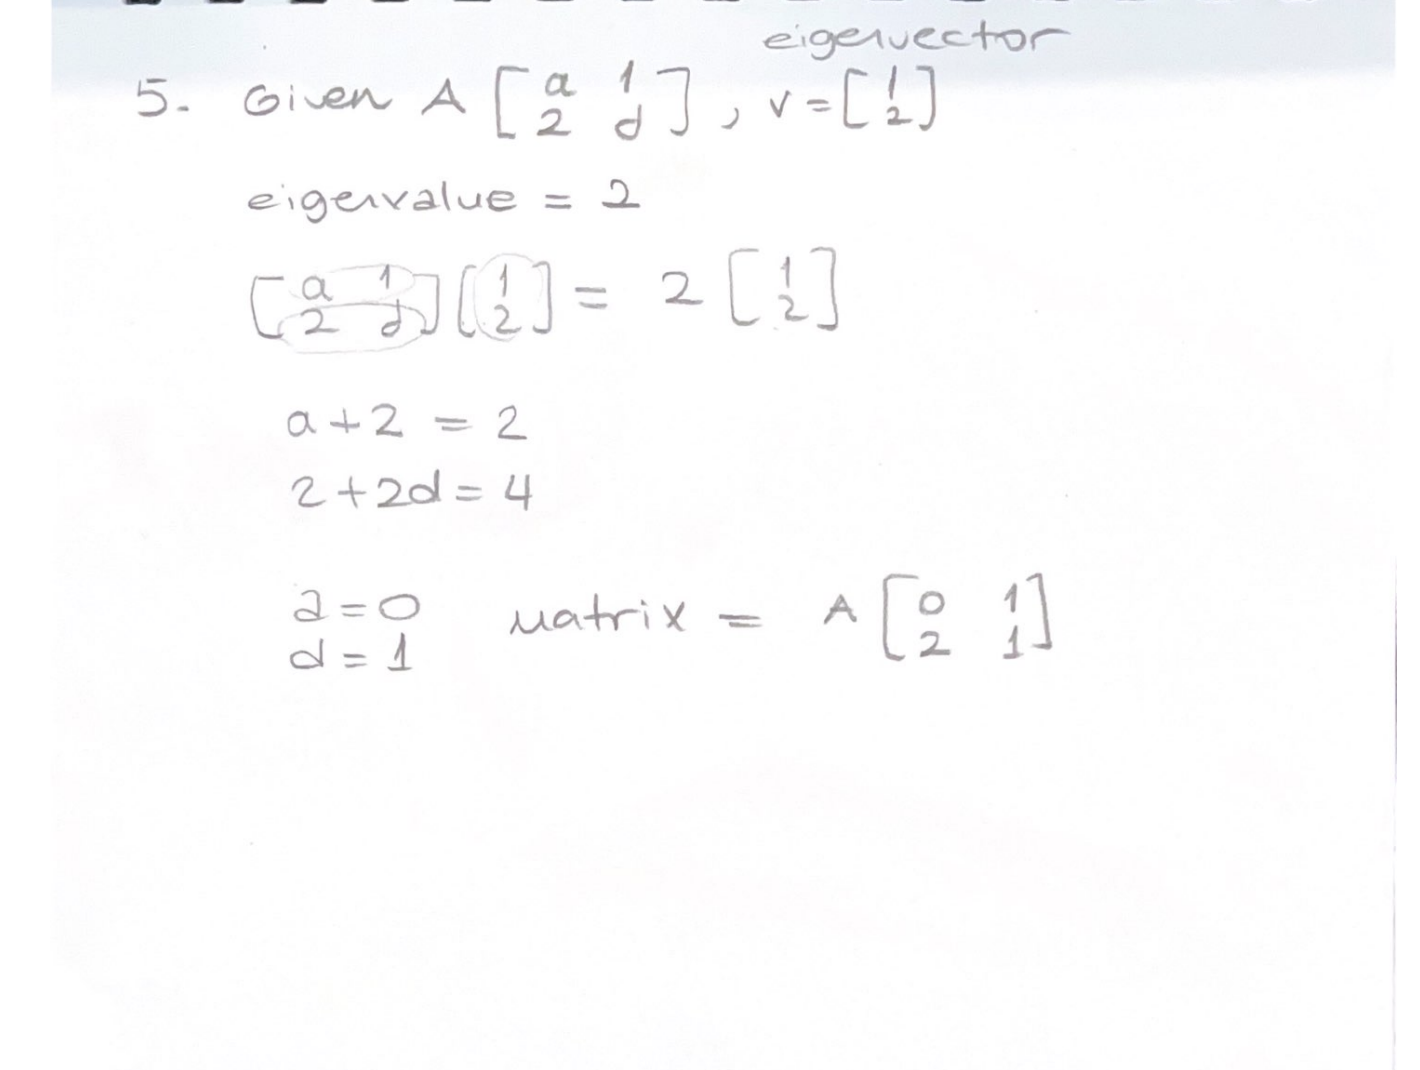 eigenvector
5. Given A [a 1 2 d], v = [1 2]
eigenvalue = 2
[a 1 2 d] [1 2] = 2 [1 2]
a + 2 = 2
2 + 2d = 4
a = 0
d = 1
matrix = A [0 1 2 1]